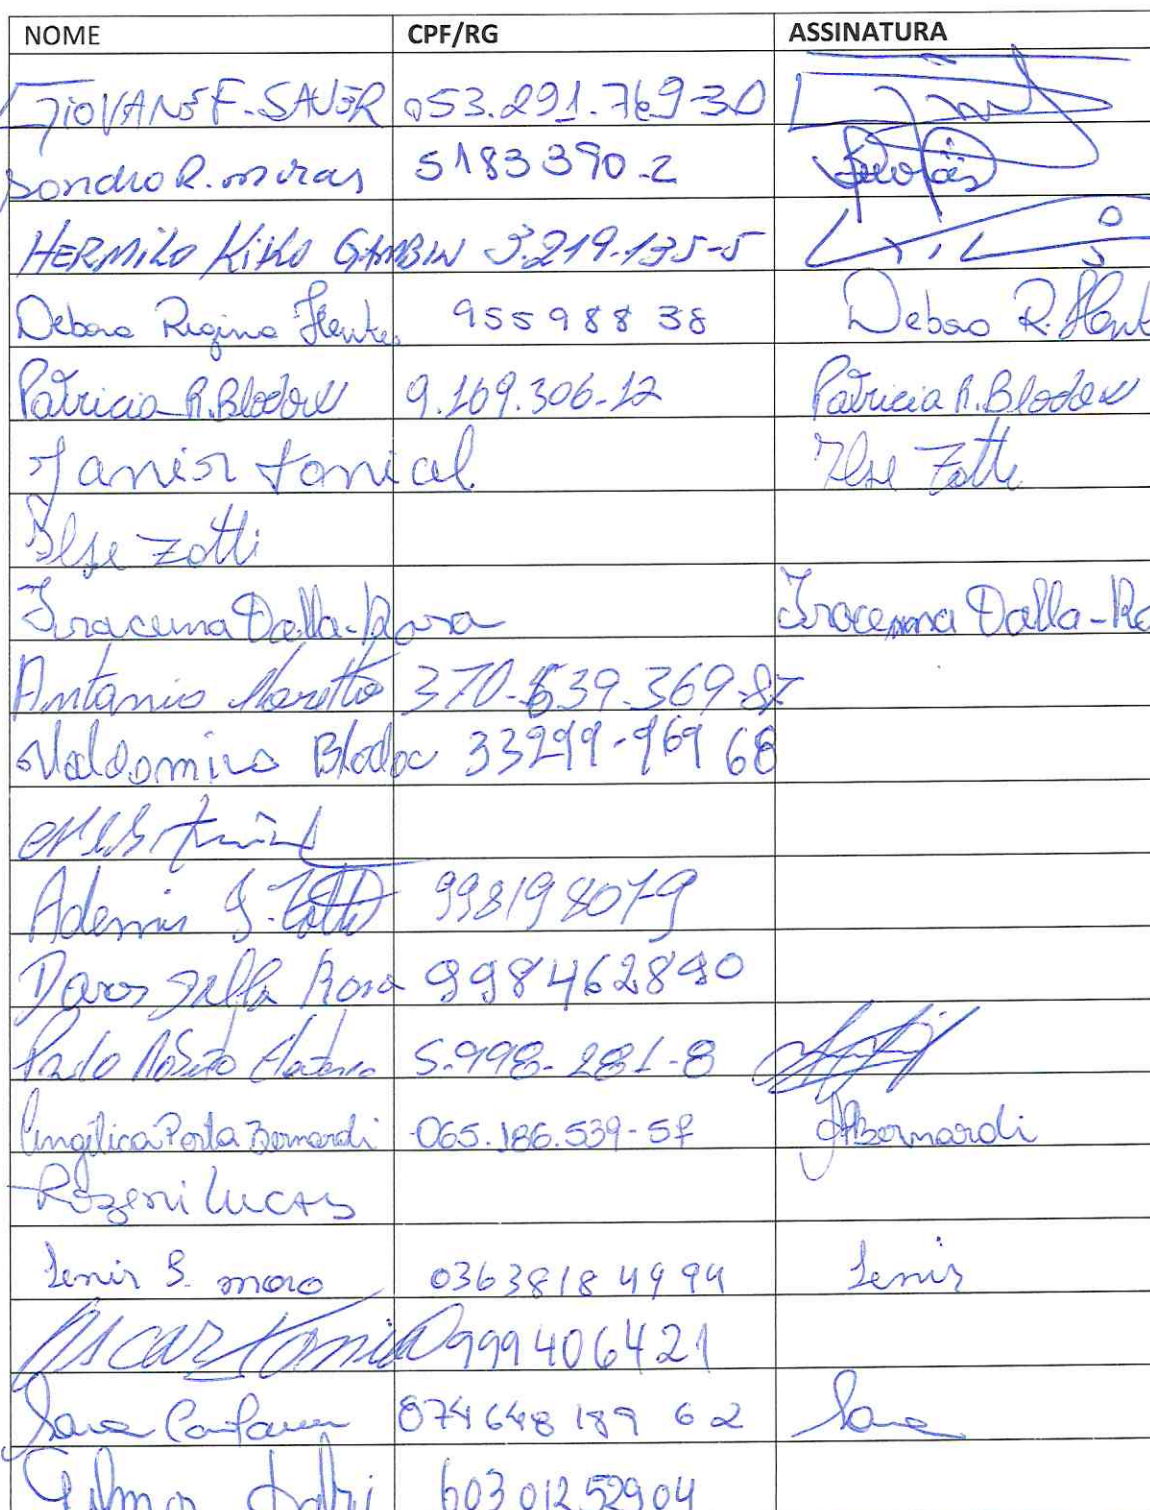 NOME CPF/RG ASSINATURA
GIOVANE F. SAUER 053.291.769-30
Sandro R. 5183390-2
HERMILO KIKO GAMBIN 3.219.135-5
Debora Regina 95598838 Debora R.
Patricia R. Blodow 9.169.306-12 Patricia R. Blodow
Janir Tonial Ilse Zotti
Ilse Zotti
Iracema Dalla-Rosa Iracema Dalla-Ro
Antonio 370.639.369-87
Valdomiro Blodo 33299-969 68
Ademir J. Zotti 998198079
Dalla Rosa 998462890
Paulo 5.998.281-8
Angélica Porta Bernardi 065.186.539-57 ABernardi
Rozeni Lucas
Lenir S. moro 03638184994 Lenir
Oscar Tonial 999406421
074648189 62
Gilmar 60301252904